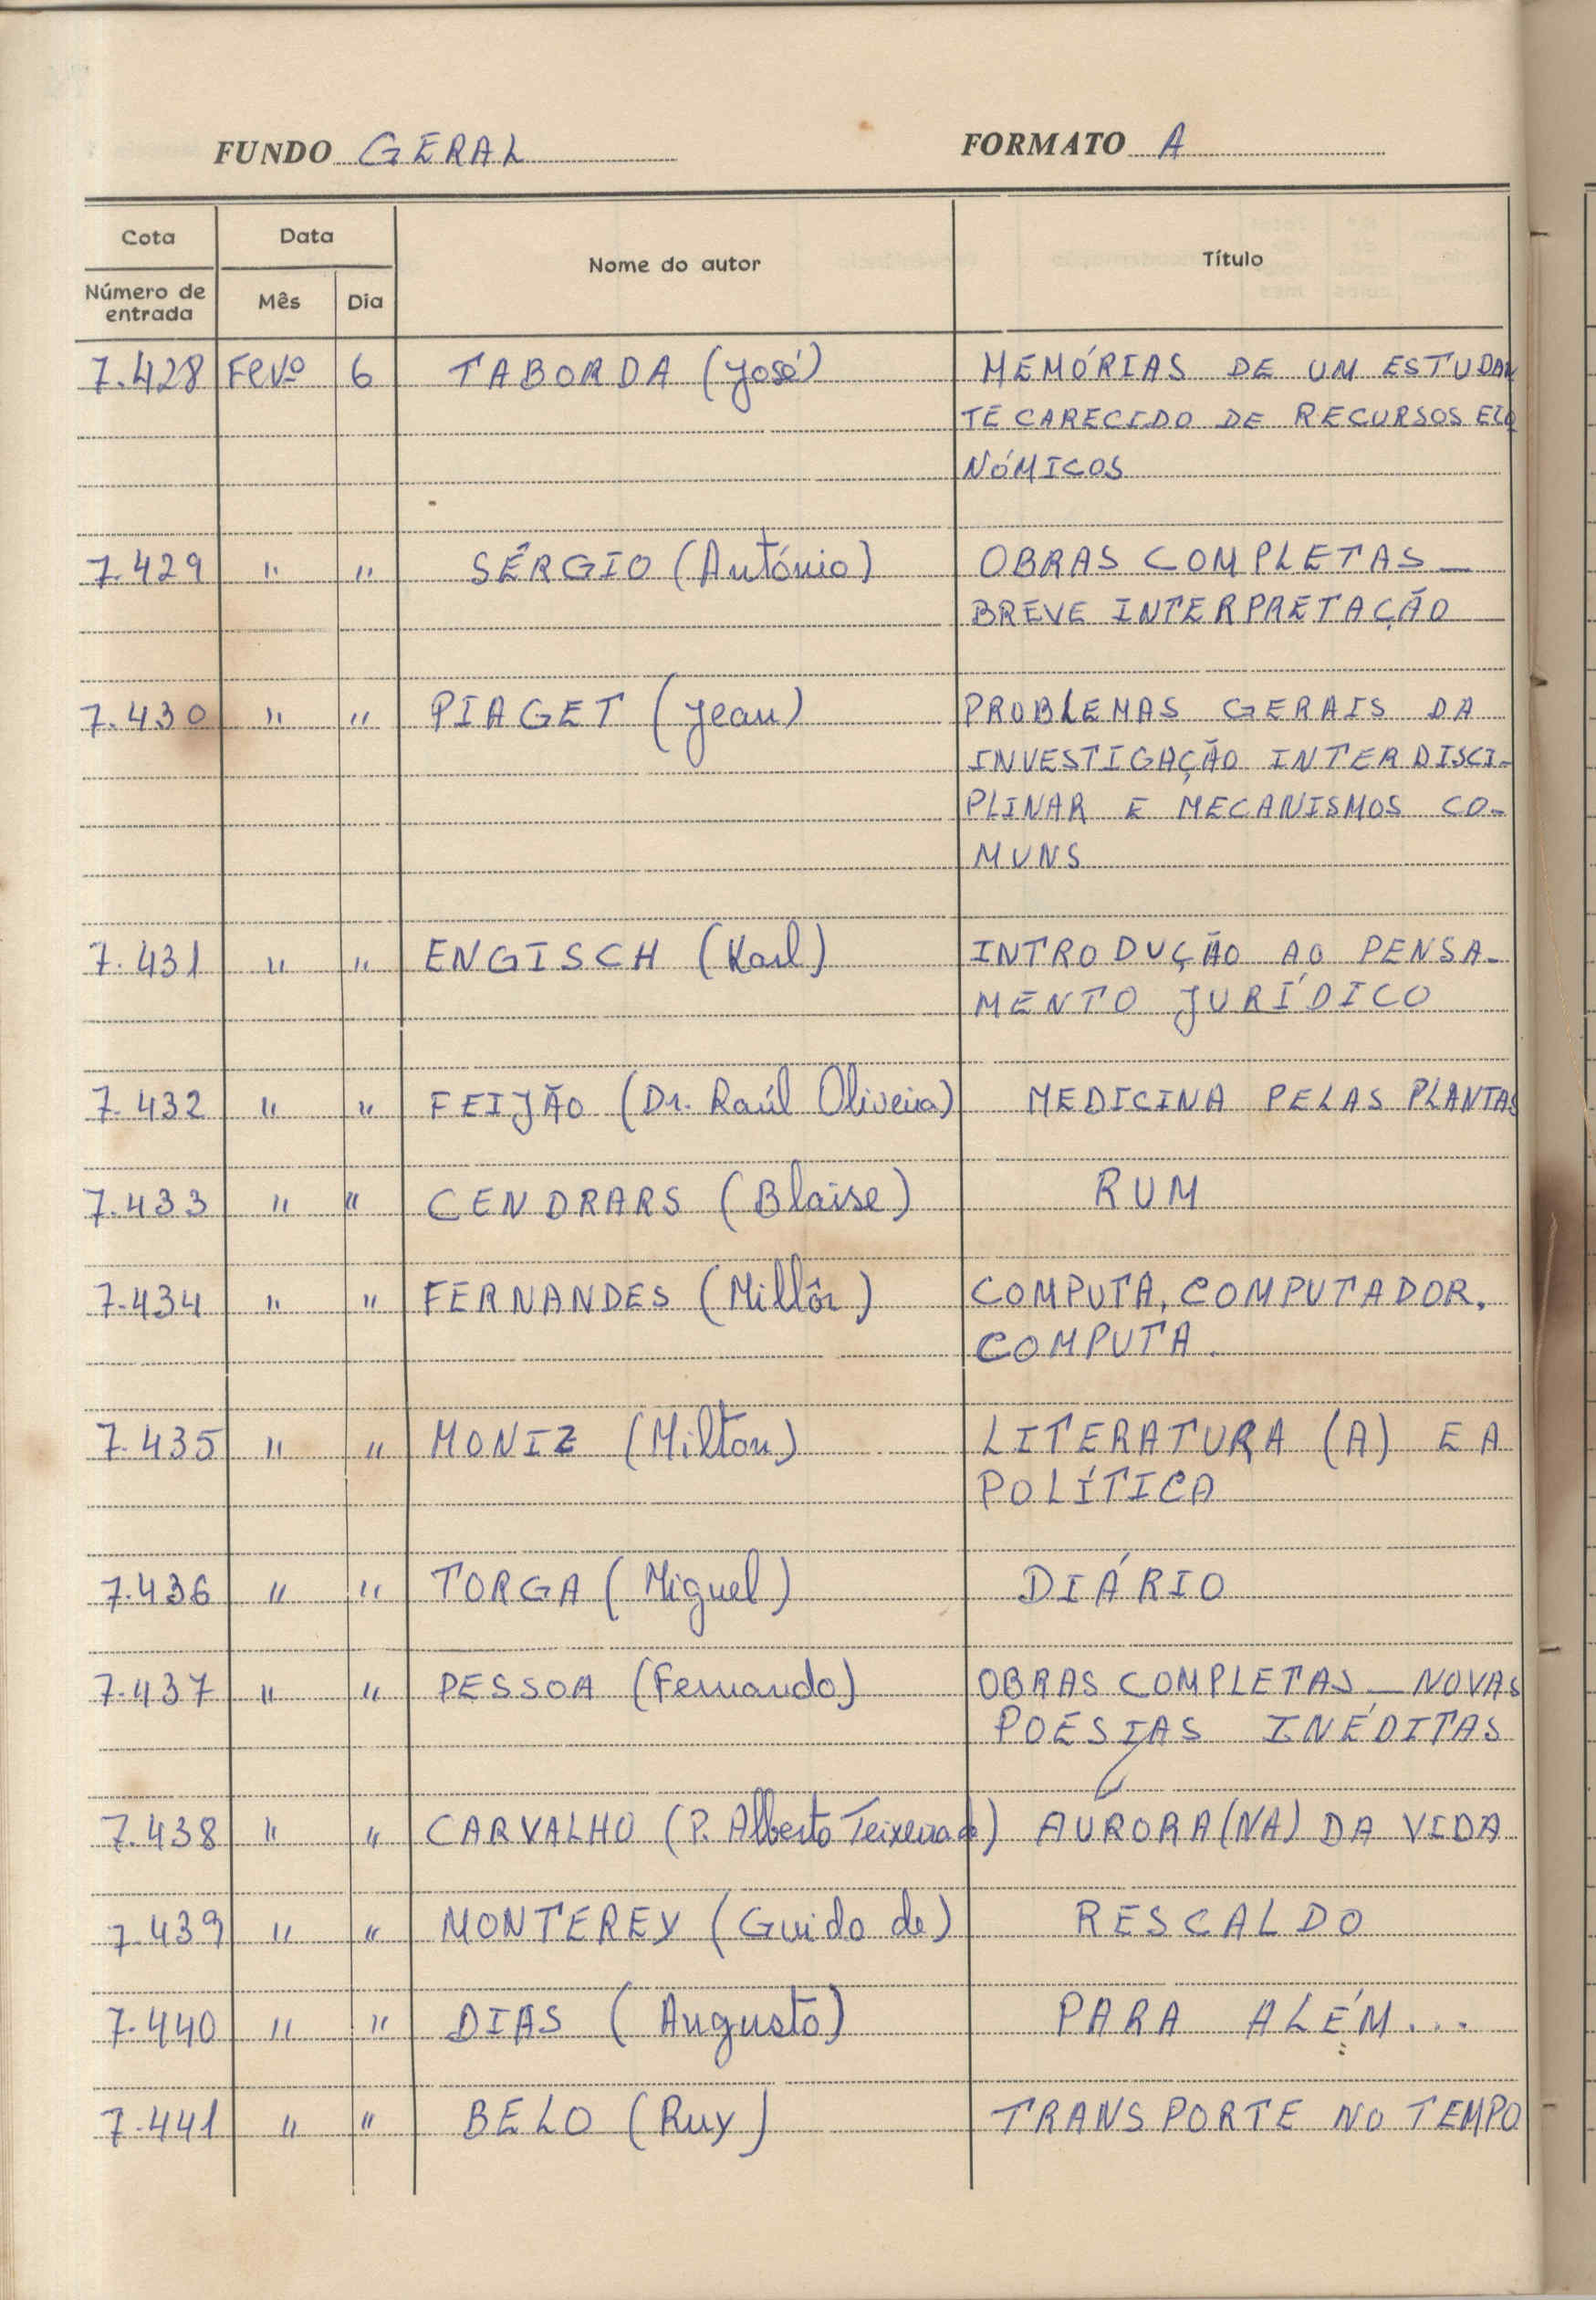 FUNDO GERAL FORMATO A
Cota Data Nome do autor Título
Número de entrada Mês Dia
7.428 Fevº 6 TABORDA (José) MEMÓRIAS DE UM ESTUDAN
TE CARECIDO DE RECURSOS ECO
NÓMICOS
7.429 " " SÉRGIO (António) OBRAS COMPLETAS —
BREVE INTERPRETAÇÃO
7.430 " " PIAGET (Jean) PROBLEMAS GERAIS DA
INVESTIGAÇÃO INTERDISCI-
PLINAR E MECANISMOS CO-
MUNS
7.431 " " ENGISCH (Karl) INTRODUÇÃO AO PENSA-
MENTO JURÍDICO
7.432 " " FEIJÃO (Dr. Raúl Oliveira) MEDICINA PELAS PLANTAS
7.433 " " CENDRARS (Blaise) RUM
7.434 " " FERNANDES (Millôr) COMPUTA, COMPUTADOR,
COMPUTA.
7.435 " " MONIZ (Milton) LITERATURA (A) E A
POLÍTICA
7.436 " " TORGA (Miguel) DIÁRIO
7.437 " " PESSOA (Fernando) OBRAS COMPLETAS — NOVAS
POESIAS INÉDITAS
7.438 " " CARVALHO (P. Alberto Teixeira de) AURORA (NA) DA VIDA
7.439 " " MONTEREY (Guido de) RESCALDO
7.440 " " DIAS (Augusto) PARA ALÉM...
7.441 " " BELO (Ruy) TRANSPORTE NO TEMPO